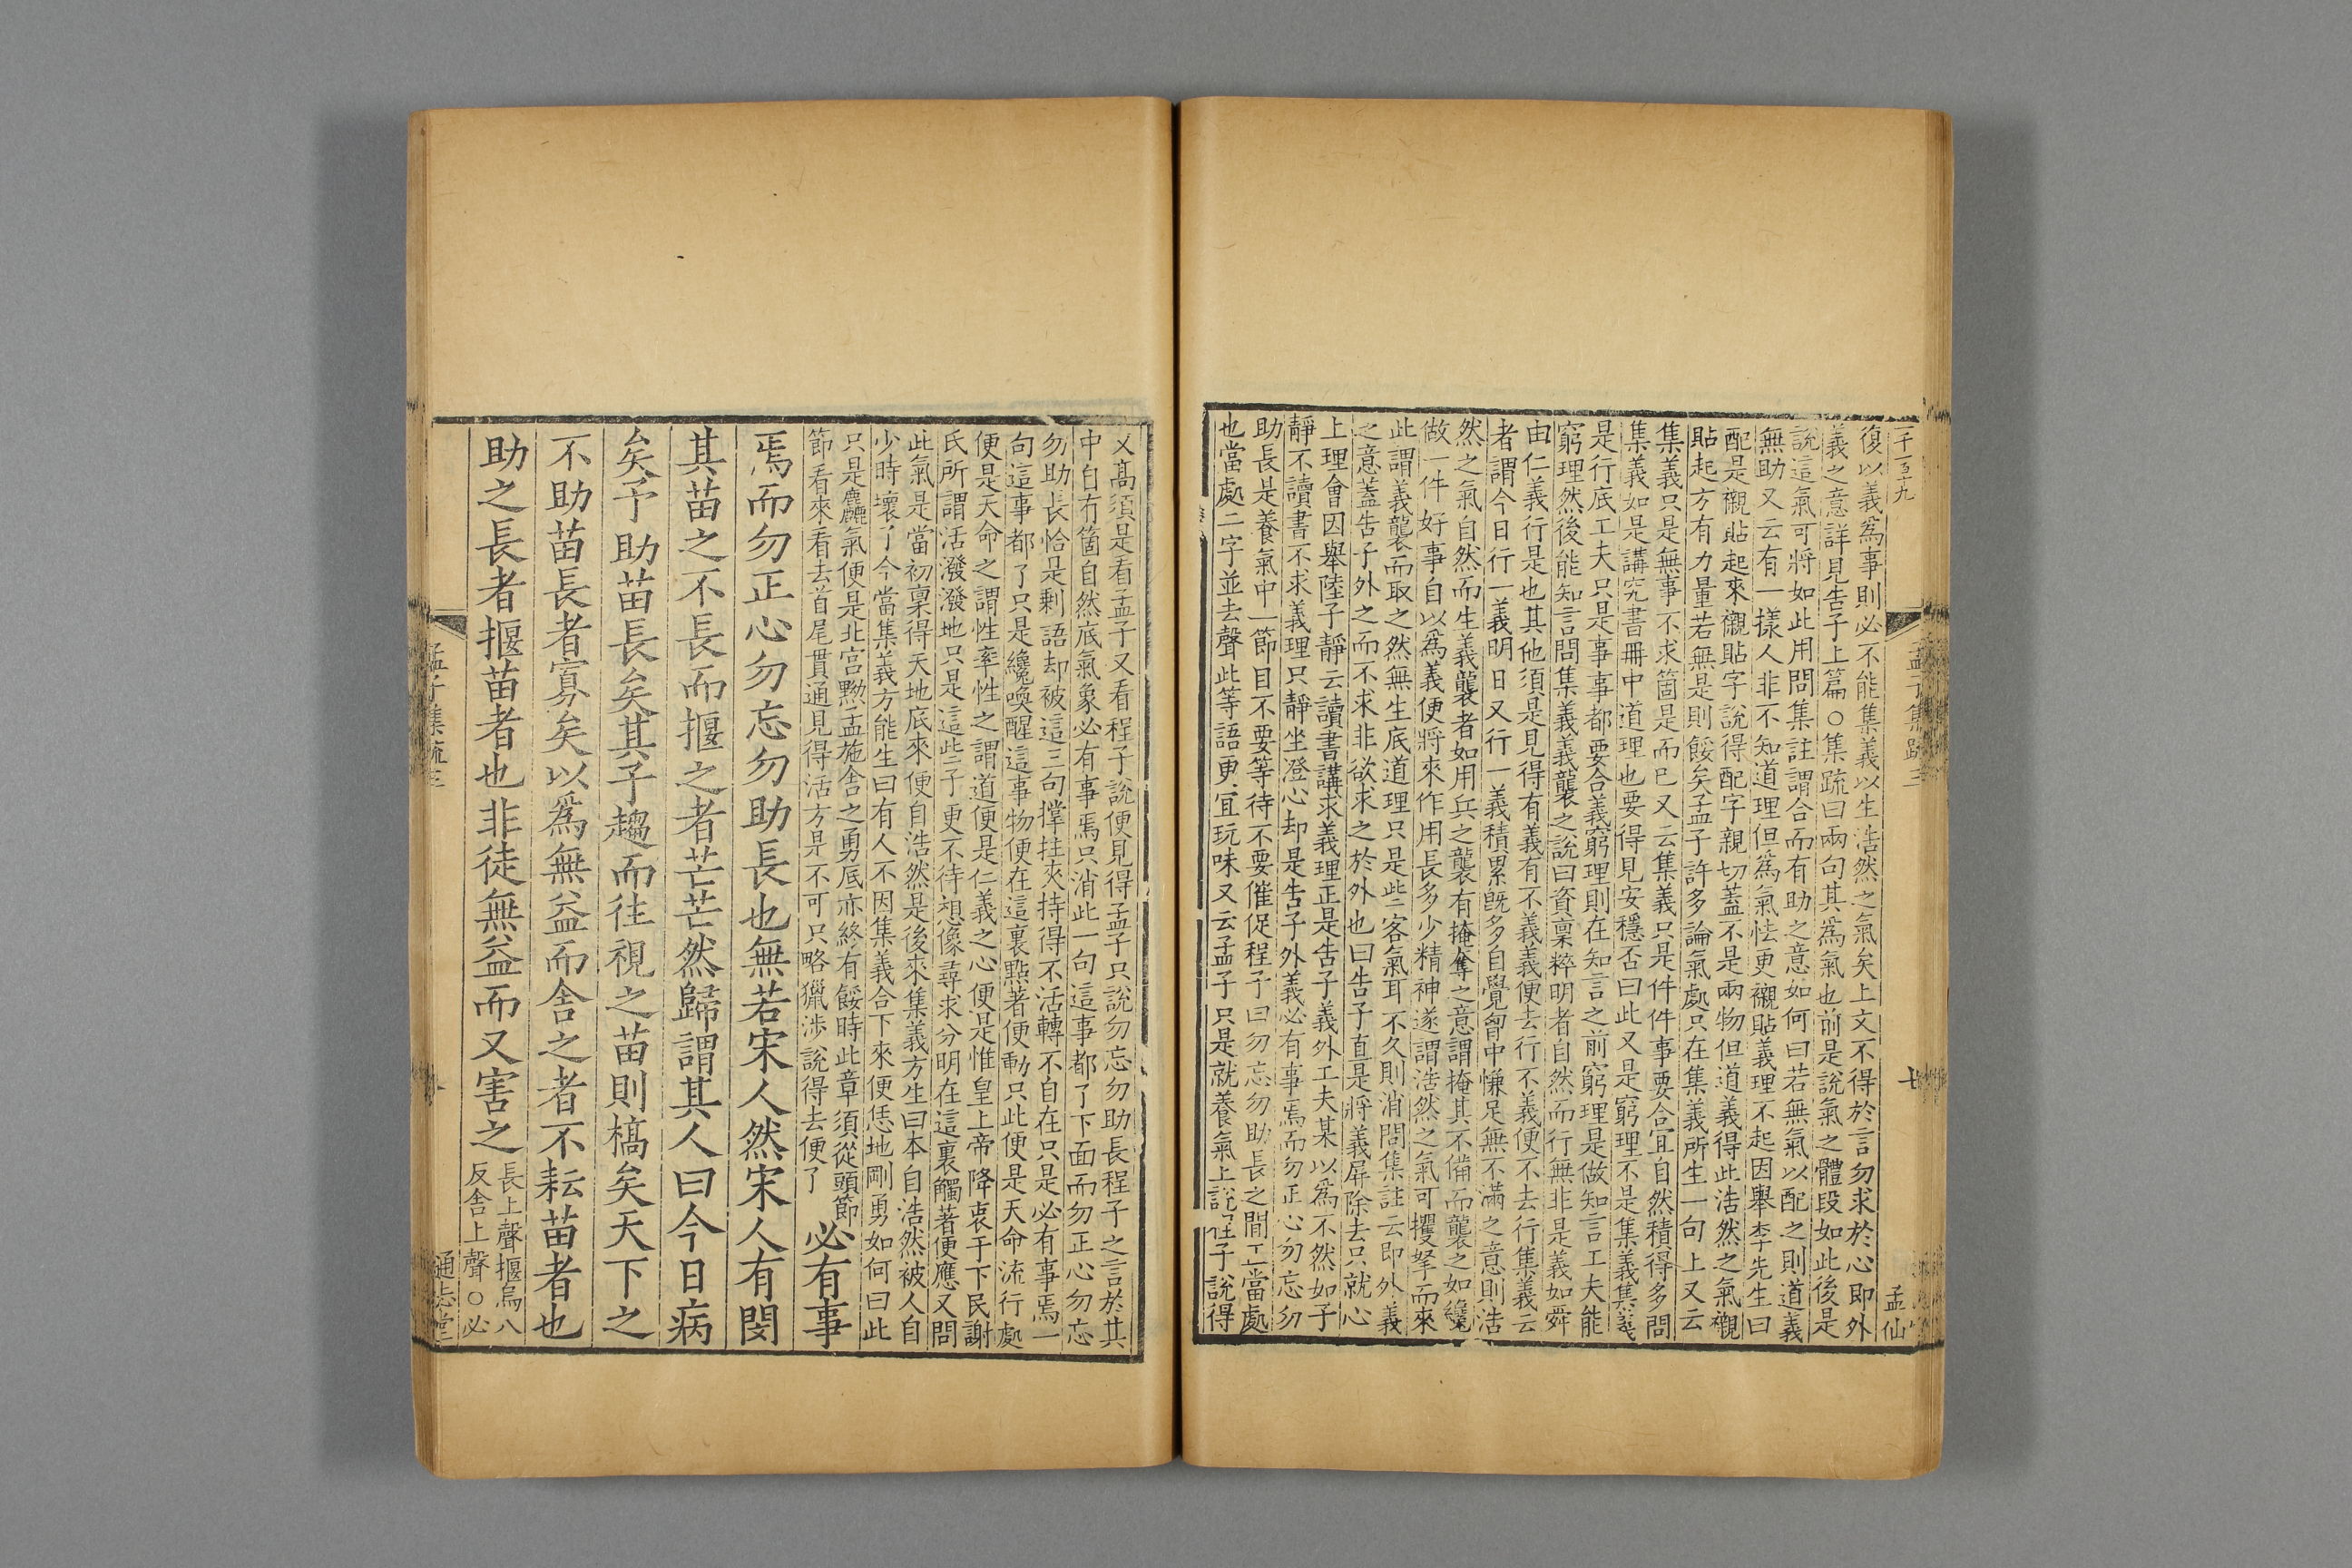 孟子集疏三
孟仙
復以義爲事則必不能集義以生浩然之氣矣上文不得於言勿求於心即外
義之意詳見告子上篇○集疏曰兩句其爲氣也前是說氣之體段如此後是
說這氣可將如此用問集註謂合而有助之意如何曰若無氣以配之則道義
無助又云有一樣人非不知道理但爲氣怯更襯貼義理不起因舉李先生曰
配是襯貼起來襯貼字說得配字親切蓋不是兩物但道義得此浩然之氣襯
貼起方有力量若無是則餒矣孟子許多論氣處只在集義所生一句上又云
集義只是無事不求箇是而已又云集義只是件件事要合宜自然積得多問
集義如是講究書冊中道理也要得見安穩否曰此又是窮理不是集義集義
是行底工夫只是事事都要合義窮理則在知言之前窮理是做知言工夫能
窮理然後能知言問集義義襲之說曰資稟粹明者自然而行無非是義如舜
由仁義行是也其他須是見得有義有不義義便去行不義便不去行集義云
者謂今日行一義明日又行一義積累旣多自覺胷中慊足無不滿之意則浩
然之氣自然而生義襲者如用兵之襲有掩奪之意謂掩其不備而襲之如纔
做一件好事自以爲義便將來作用長多少精神遂謂浩然之氣可攫拏而來
此謂義襲而取之然無生底道理只是些客氣耳不久則消問集註云即外義
之意蓋告子外之而不求非欲求之於外也曰告子直是將義屏除去只就心
上理會因舉陸子靜云讀書講求義理正是告子義外工夫某以爲不然如子
靜不讀書不求義理只靜坐澄心却是告子外義必有事焉而勿正心勿忘勿
助長是養氣中一節目不要等待不要催促程子曰勿忘勿助長之間正當處
也當處二字並去聲此等語更宜玩味又云孟子只是就養氣上說程子說得
又高須是看孟子又看程子說便見得孟子只說勿忘勿助長程子之言於其
中自有箇自然底氣象必有事焉只消此一句這事都了下面而勿正心勿忘
勿助長恰是剩語却被這三句撑拄夾持得不活轉不自在只是必有事焉一
句這事都了只是纔喚醒這事物便在這裏點著便動只此便是天命流行處
便是天命之謂性率性之謂道便是仁義之心便是惟皇上帝降衷于下民謝
氏所謂活潑潑地只是這些子更不待想像尋求分明在這裏觸著便應又問
此氣是當初稟得天地底來便自浩然是後來集義方生曰本自浩然被人自
少時壞了今當集義方能生曰有人不因集義合下來便恁地剛勇如何曰此
只是麤氣便是北宮黝孟施舍之勇底亦終有餒時此章須從頭節
節看來看去首尾貫通見得活方是不可只略獵涉說得去便了
必有事
焉而勿正心勿忘勿助長也無若宋人然宋人有閔
其苗之不長而揠之者芒芒然歸謂其人曰今日病
矣予助苗長矣其子趨而往視之苗則槁矣天下之
不助苗長者寡矣以爲無益而舍之者不耘苗者也
助之長者揠苗者也非徒無益而又害之
長上聲揠烏八
反舍上聲○必
孟子集疏三
通志堂